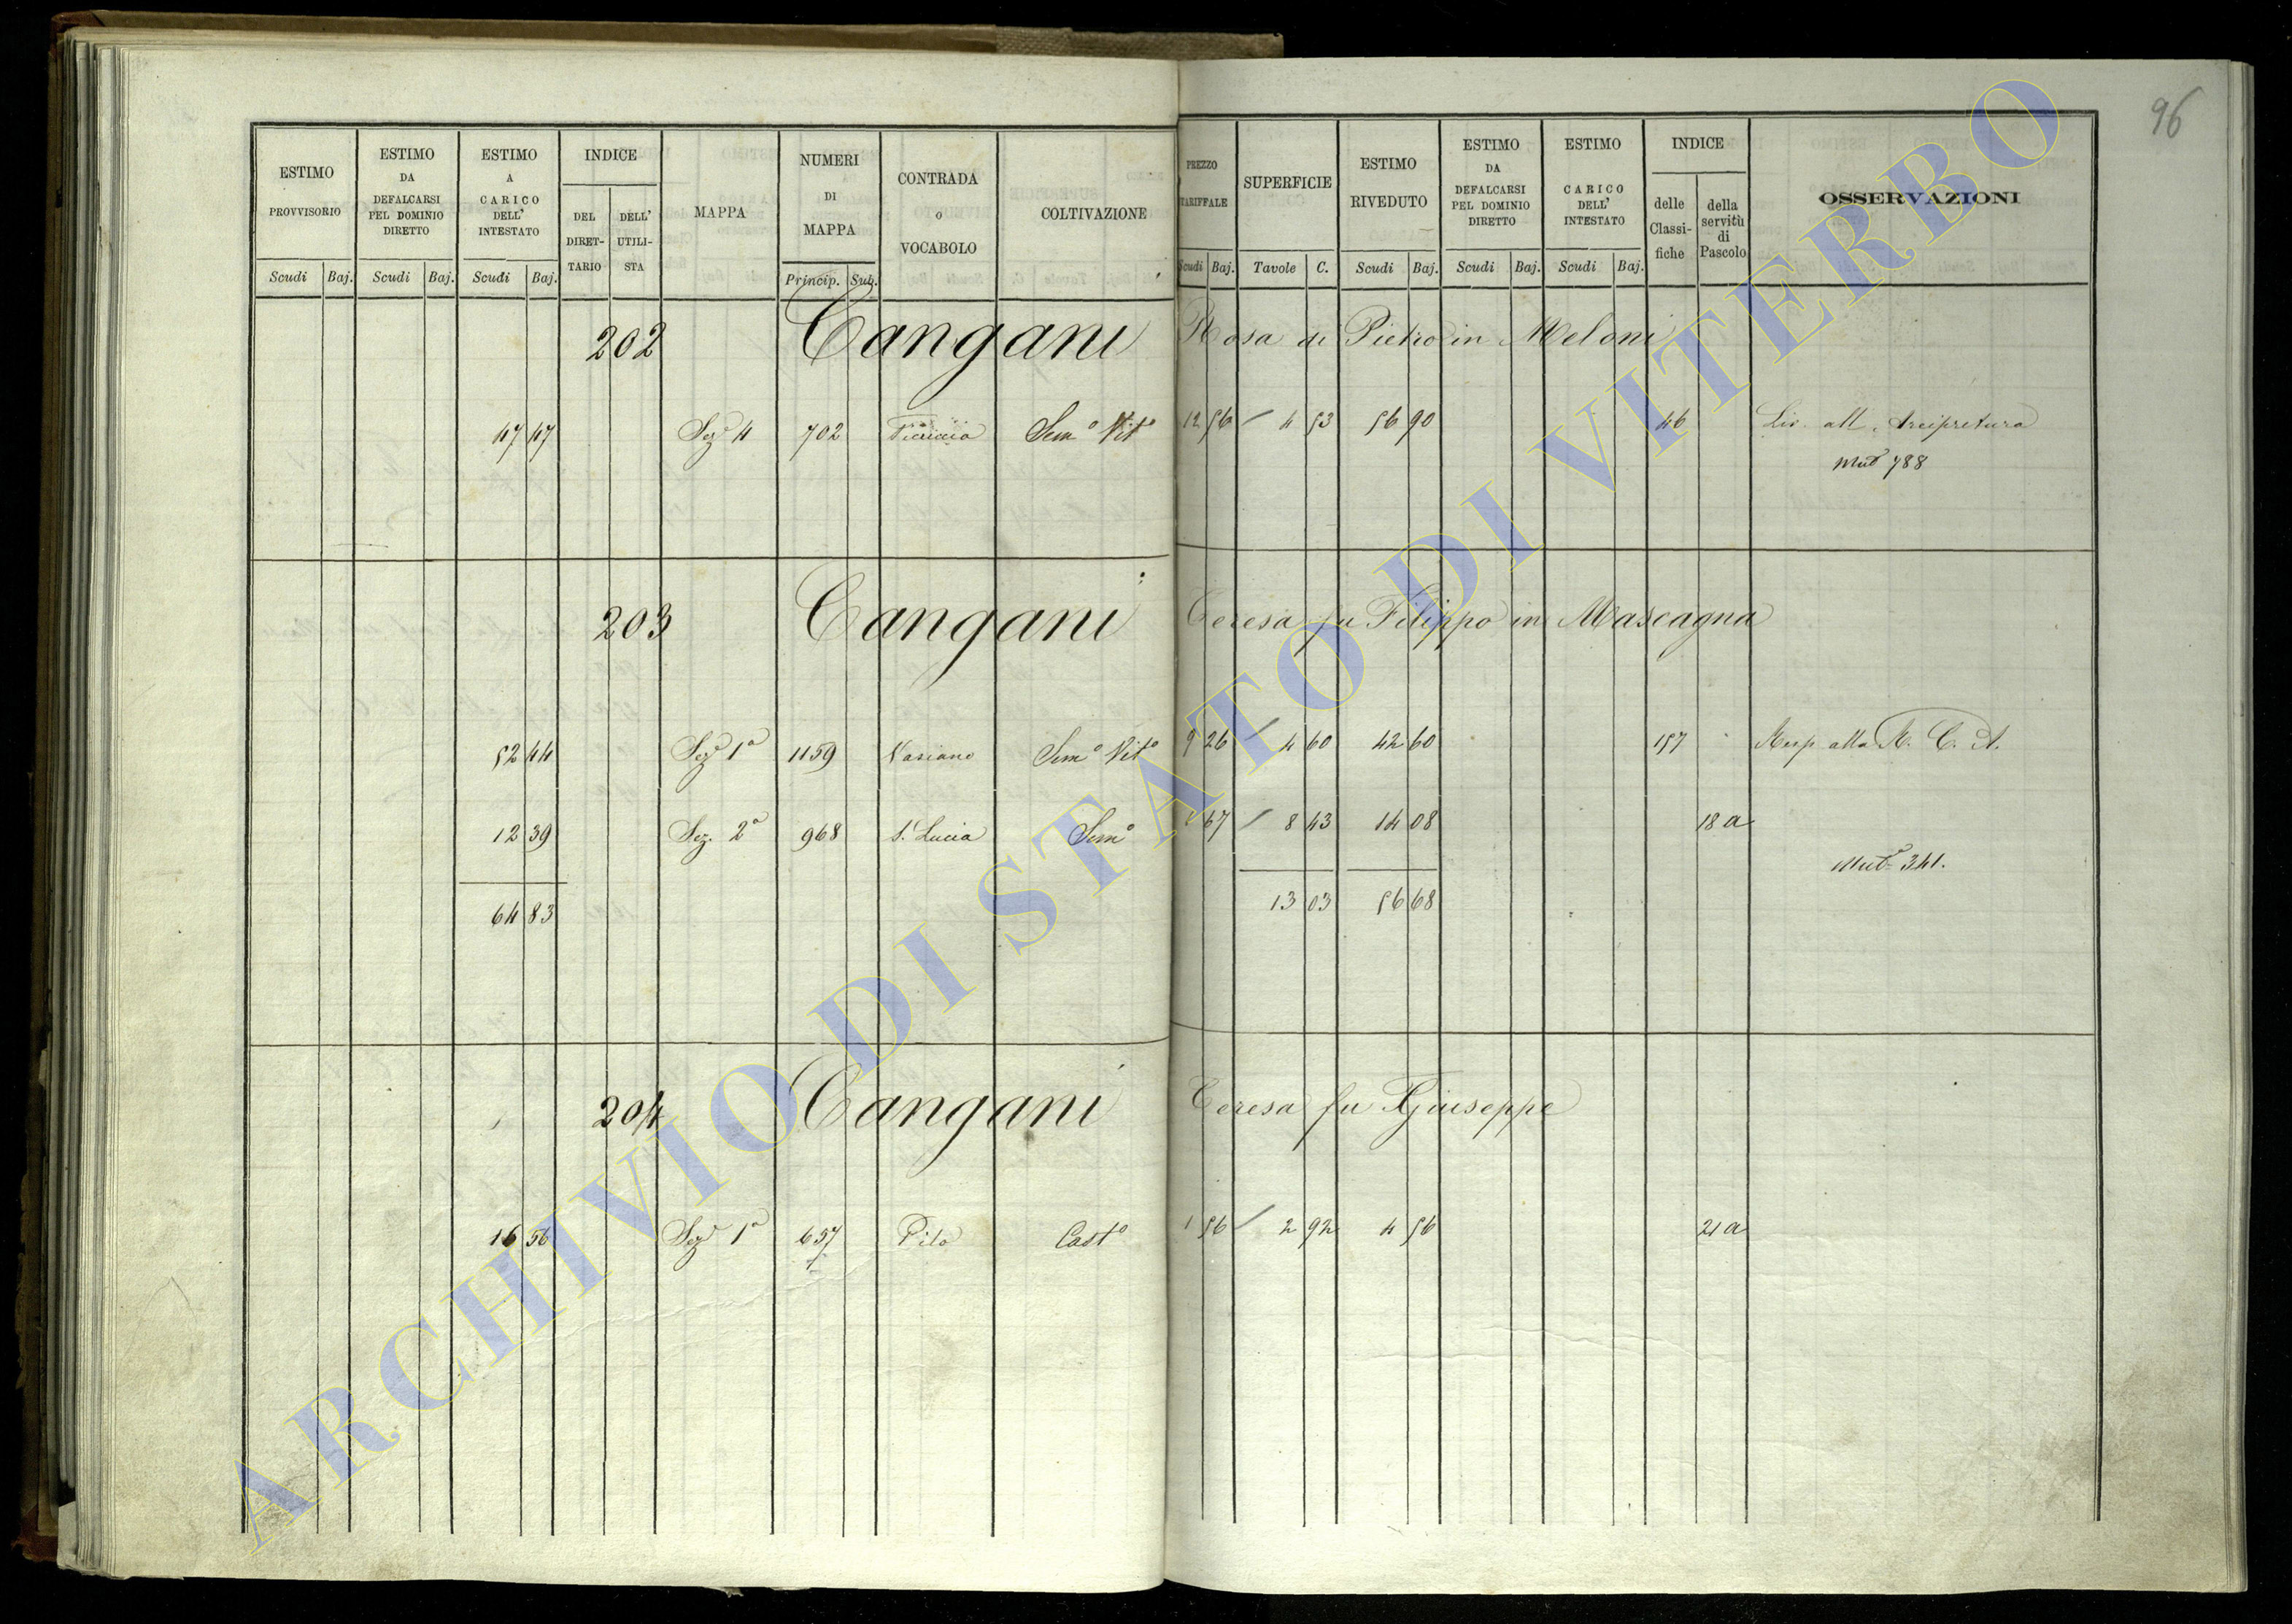 96
ESTIMO PROVVISORIO
ESTIMO DA DEFALCARSI PEL DOMINIO DIRETTO
ESTIMO A CARICO DELL' INTESTATO
INDICE
DEL DIRET-TARIO
DELL' UTILI-STA
MAPPA
NUMERI DI MAPPA
CONTRADA o VOCABOLO
COLTIVAZIONE
PREZZO TARIFFALE
SUPERFICIE
ESTIMO RIVEDUTO
ESTIMO DA DEFALCARSI PEL DOMINIO DIRETTO
ESTIMO CARICO DELL' INTESTATO
INDICE
delle Classi-fiche
della servitù di Pascolo
OSSERVAZIONI
Scudi Baj. Scudi Baj. Scudi Baj. Princip. Sub. Scudi Baj. Tavole C. Scudi Baj. Scudi Baj. Scudi Baj.
202 Cangani Rosa di Pietro in Meloni
47 47 Sezᵉ 4 702 Semᵒ Vitᵒ 12 56 4 53 56 90 46 Liv. all'Arcipretura
Mutᵃ 788
203 Cangani Teresa fu Filippo in Mascagna
52 44 Sezᵉ 1ᵃ 1159 Vasiano Semᵒ Vitᵒ 9 26 4 60 42 60 157 Resp alla R. C. A.
12 39 Sez. 2ᵃ 968 S. Lucia Semᵒ 1 67 8 43 14 08 18 a
Mutᵃ 341.
64 83 13 03 56 68
204 Cangani Teresa fu Giuseppe
16 56 Sezᵉ 1ᵃ 657 Pilo Castᵒ 1 56 2 92 4 56 21 a
ARCHIVIO DI STATO DI VITERBO